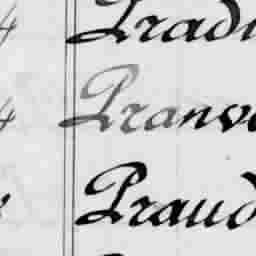 4 Pradi
4 Pranve
Praud